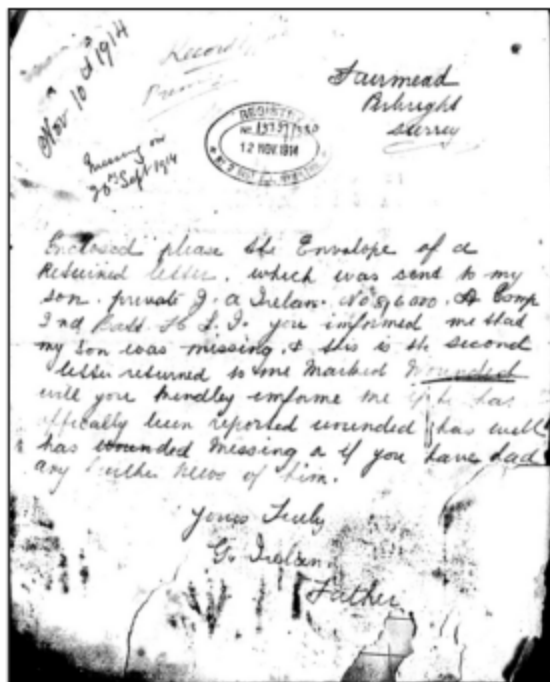 Nov 10th 1914
Record
Fairmead
Pirbright
Surrey
REGISTRY
12 NOV. 1914
Missing on
20th Sept 1914
Enclosed please the Envelope of a
Returned letter. which was sent to my
son. private J. a Irelan. No A Comp
2nd Batt. H L. I. you informed me that
my son was missing. & this is the second
letter returned to me Marked Wounded
will you kindley informe me if he has
offically been reported wounded has well
has wounded missing a if you have had
any further News of him.
Yours Truly
G. Irelan.
Father